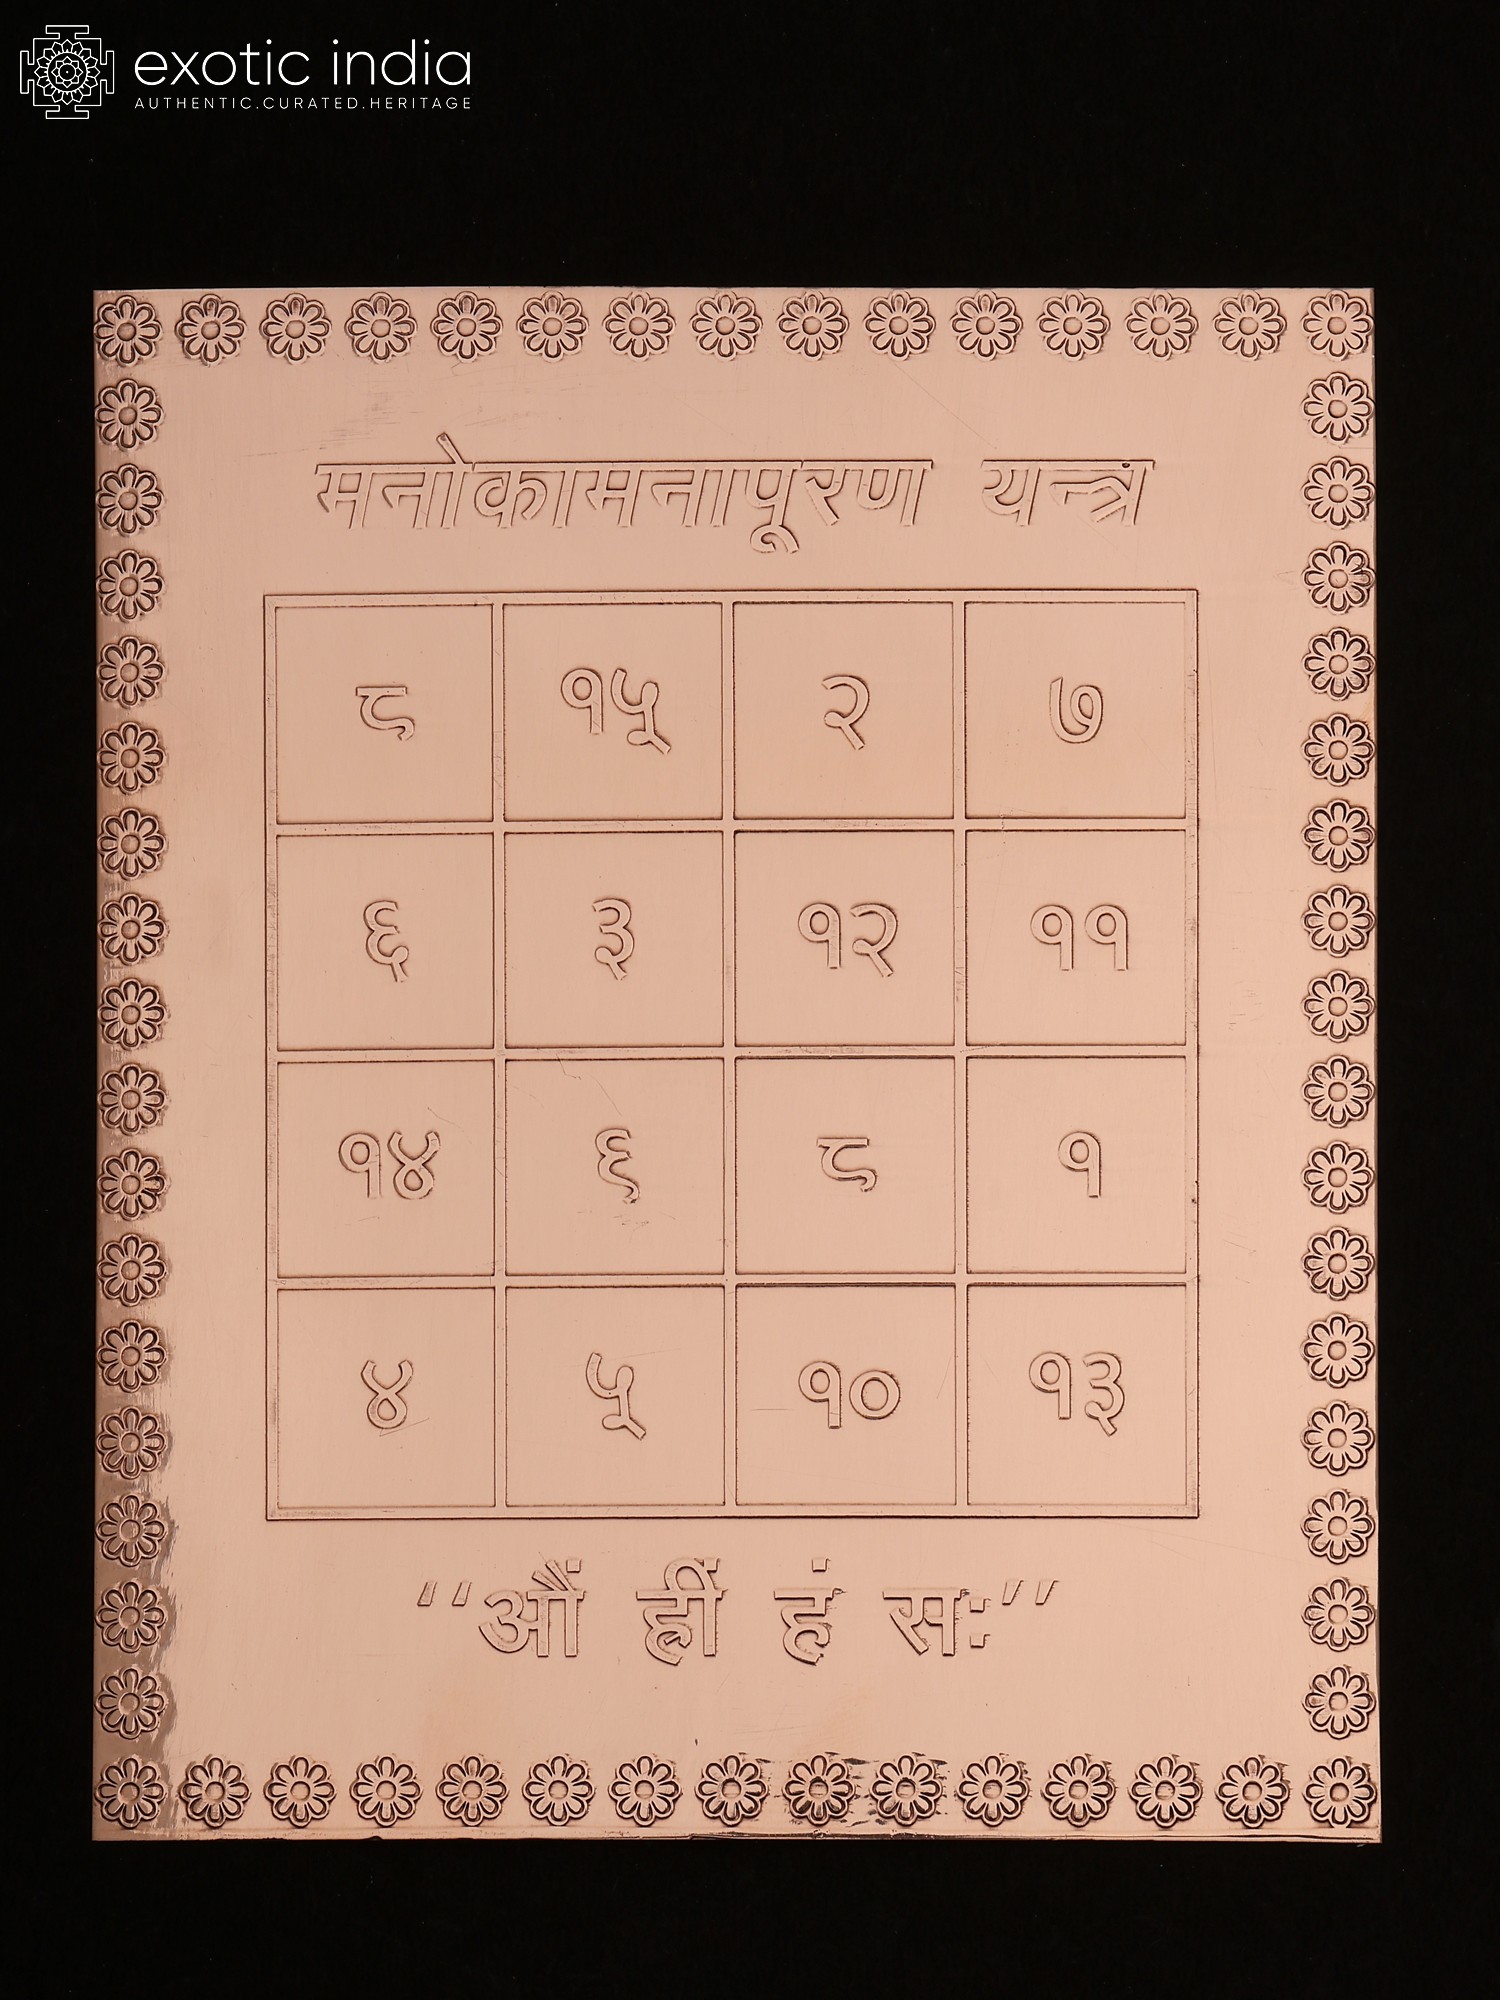 exotic india
AUTHENTIC.CURATED.HERITAGE
मनोकामनापूरण यन्त्र
८ १५ २ ७
६ ३ १२ ११
१४ ९ ८ १
४ ५ १० १३
‘‘औं ह्रीं हं सः’’